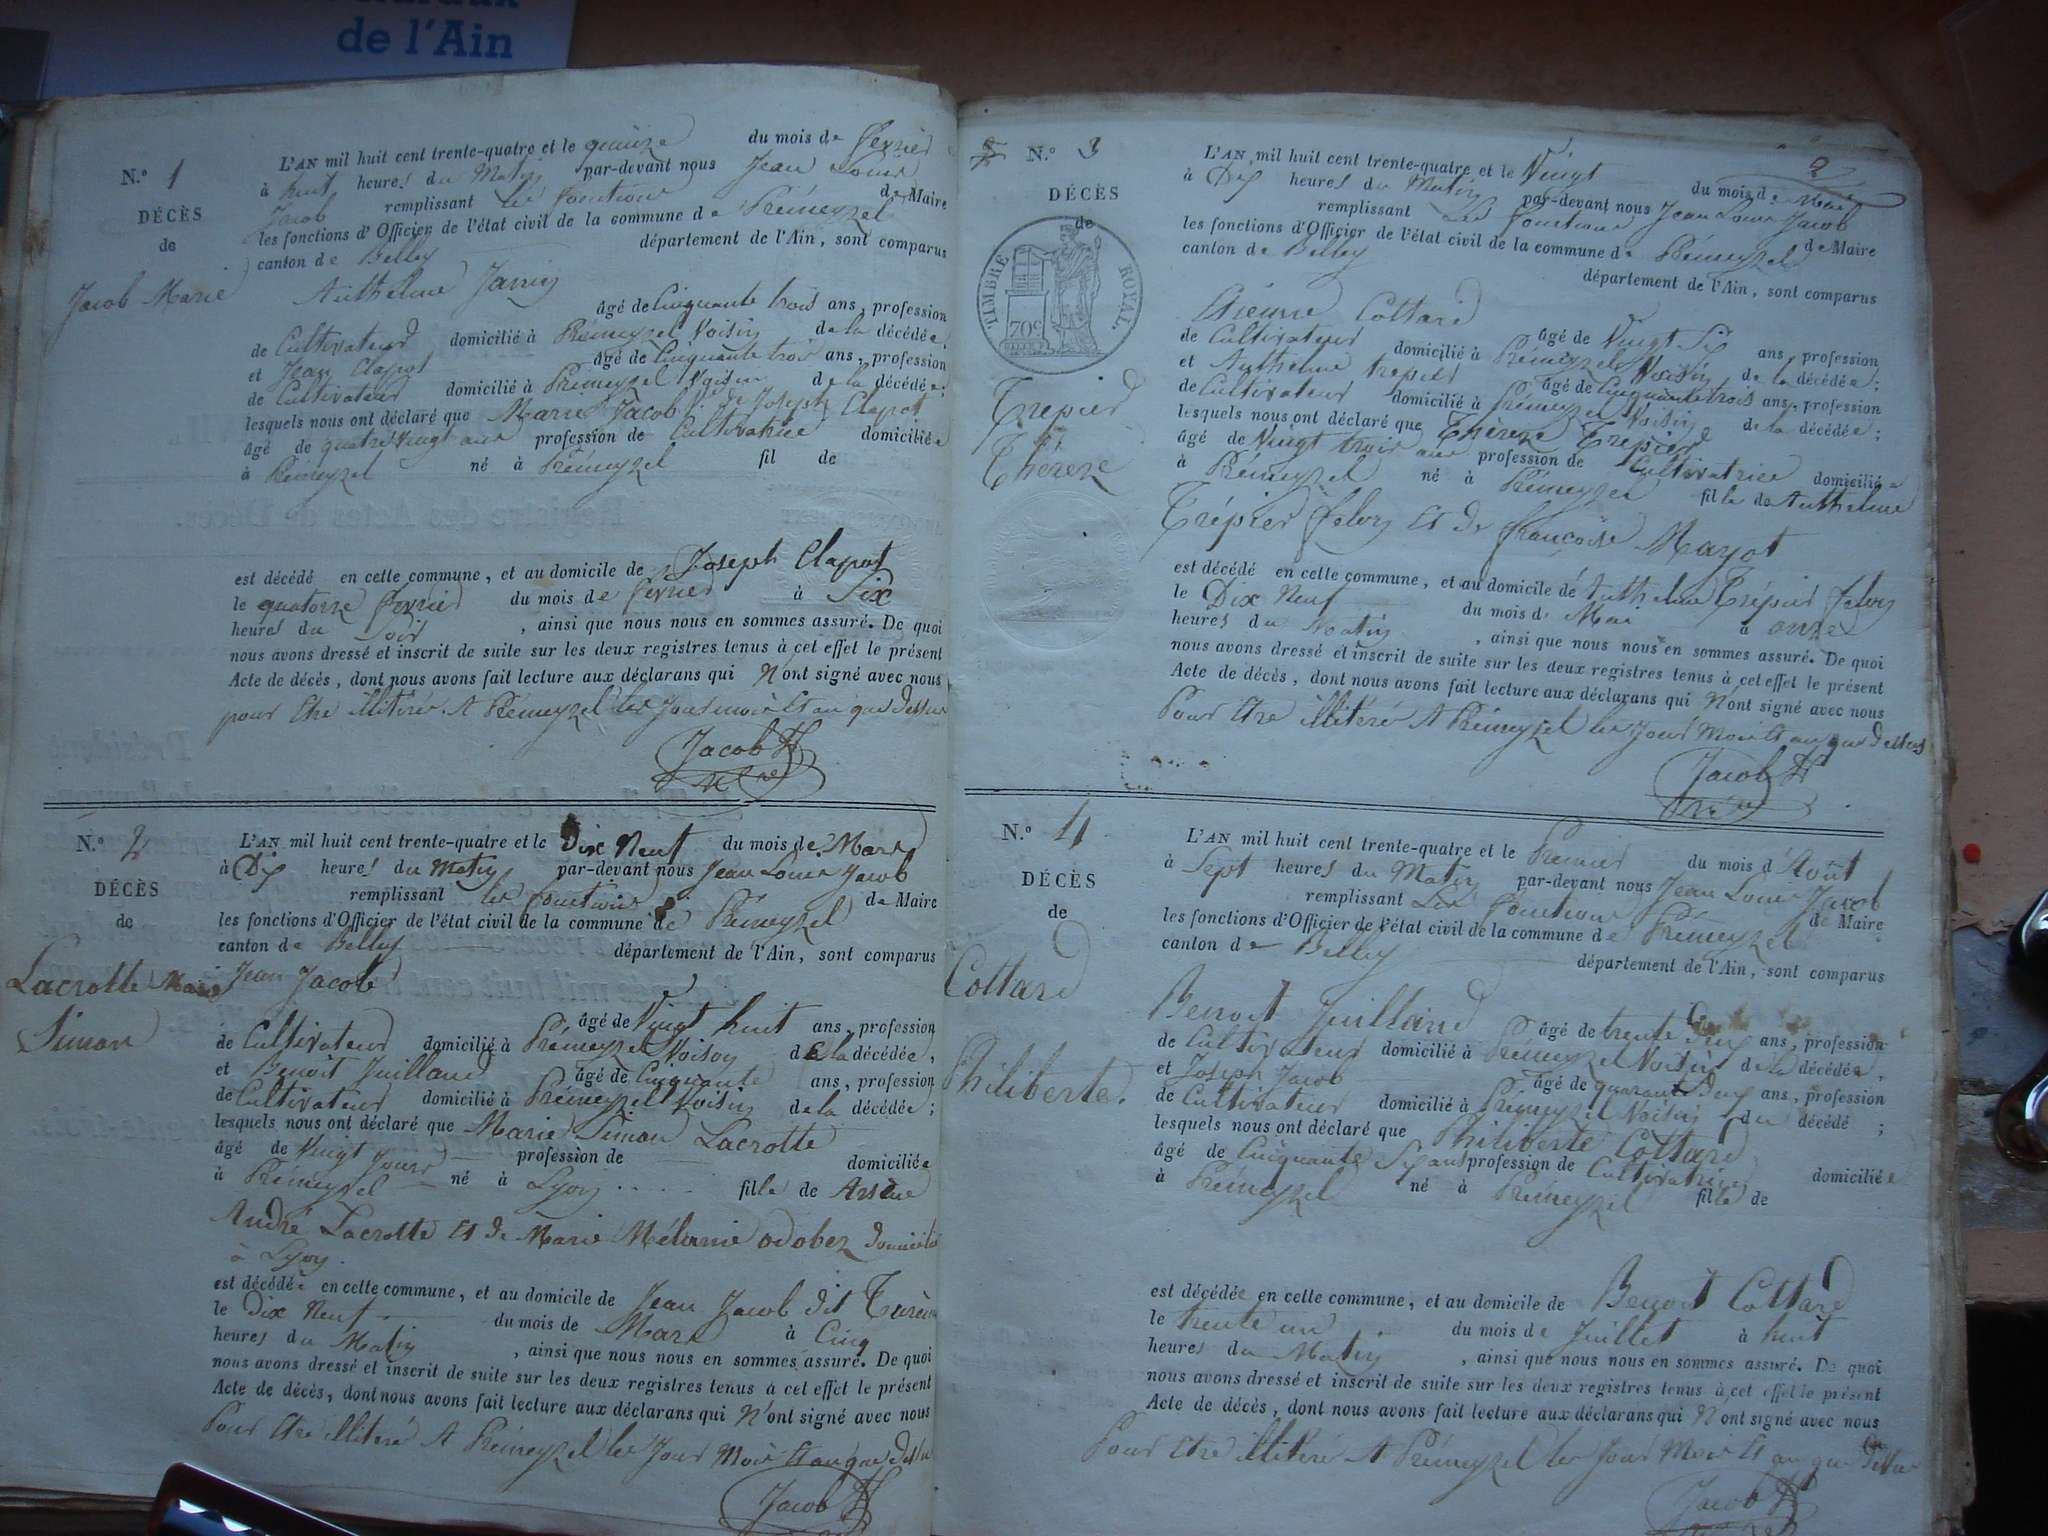 de l'Ain
N.º 1
DÉCÈS
de
Jacob Marie
L'AN mil huit cent trente-quatre et le quinze du mois de fevrier
à huit heures du Matin par-devant nous Jean Louis
Jacob remplissant les fonctions de Maire
les fonctions d'Officier de l'état civil de la commune de Prémeyzel
canton de Belley département de l'Ain, sont comparus
Anthelme Janin
âgé de Cinquante trois ans, profession
de Cultivateur domicilié à Prémeyzel Voisin de la décédée,
et Jean Clapot âgé de Cinquante trois ans, profession
de Cultivateur domicilié à Prémeyzel Voisin de la décédée;
lesquels nous ont déclaré que Marie Jacob de Joseph Clapot
âgé de quatre vingt ans profession de Cultivatrice domiciliée
à Prémeyzel né à Prémeyzel fil de
est décédé en cette commune, et au domicile de Joseph Clapot
le quatorze fevrier du mois de fevrier à Six
heures du Soir, ainsi que nous nous en sommes assuré. De quoi
nous avons dressé et inscrit de suite sur les deux registres tenus à cet effet le présent
Acte de décès, dont nous avons fait lecture aux déclarans qui N'ont signé avec nous
pour Etre illitéré A Prémeyzel les Jour mois Et an que dessus
Jacob
N.º 2
DÉCÈS
de
Lacrotte Marie
Simon
L'AN mil huit cent trente-quatre et le Dix Neuf du mois de Mars
à Dix heures du Matin par-devant nous Jean Louis Jacob
remplissant les fonctions de Maire
les fonctions d'Officier de l'état civil de la commune de Prémeyzel
canton de Belley département de l'Ain, sont comparus
Jean Jacob
âgé de Vingt huit ans, profession
de Cultivateur domicilié à Prémeyzel Voisin de la décédée,
et Benoit Juilland âgé de Cinquante ans, profession
de Cultivateur domicilié à Prémeyzel Voisin de la décédée;
lesquels nous ont déclaré que Marie Simon Lacrotte
âgé de Vingt Jours profession de domiciliée
à Prémeyzel né à Lyon fille de Arsène
André Lacrotte Et de Marie Mélanie odobez domicilié
à Lyon
est décédée en cette commune, et au domicile de Jean Jacob dit
le Dix Neuf du mois de Mars à Cinq
heures du Matin, ainsi que nous nous en sommes assuré. De quoi
nous avons dressé et inscrit de suite sur les deux registres tenus à cet effet le présent
Acte de décès, dont nous avons fait lecture aux déclarans qui N'ont signé avec nous
Pour Etre illitéré A Prémeyzel les Jour Mois Et an que dessu
Jacob
2
N.º 3
DÉCÈS
de
TIMBRE ROYAL.
70c
Trepier
Théreze
L'AN mil huit cent trente-quatre et le Vingt du mois de Mai
à Dix heures du Matin par-devant nous Jean Louis Jacob
remplissant Les fonctions de Maire
les fonctions d'Officier de l'état civil de la commune de Prémeyzel
canton de Belley département de l'Ain, sont comparus
Etienne Cottard
âgé de Vingt Six ans, profession
de Cultivateur domicilié à Prémeyzel Voisin de la décédée;
et Anthelme trepier âgé de Cinquante trois ans, profession
de Cultivateur domicilié à Prémeyzel Voisin de la décédée;
lesquels nous ont déclaré que Thérèze Trepier
âgé de Vingt trois ans profession de Cultivatrice domiciliée
à Prémeyzel né à Prémeyzel fille de Anthelme
Trépier felix Et de françoise Mayot
est décédé en cette commune, et au domicile de Anthelme Trépier felix
le Dix Neuf du mois de Mai à onze
heures du Matin, ainsi que nous nous en sommes assuré. De quoi
nous avons dressé et inscrit de suite sur les deux registres tenus à cet effet le présent
Acte de décès, dont nous avons fait lecture aux déclarans qui N'ont signé avec nous
Pour Etre illitéré A Prémeyzel les Jour Mois Et an que dessus
Jacob
N.º 4
DÉCÈS
de
Cottard
Philiberte.
L'AN mil huit cent trente-quatre et le Premier du mois d'Août
à Sept heures du Matin par-devant nous Jean Louis Jacob
remplissant Les fonctions de Maire
les fonctions d'Officier de l'état civil de la commune de Prémeyzel
canton de Belley département de l'Ain, sont comparus
Benoit Juilland
âgé de trente ans, profession
de Cultivateur domicilié à Prémeyzel Voisin de la décédée,
et Joseph Jacob âgé de quarante Deux ans, profession
de Cultivateur domicilié à Prémeyzel Voisin du décédé;
lesquels nous ont déclaré que Philiberte Cottard
âgé de Cinquante Six ans profession de Cultivatrice domiciliée
à Prémeyzel né à Prémeyzel fille de
est décédée en cette commune, et au domicile de Benoit Cottard
le trente un du mois de Juillet à huit
heures du Matin, ainsi que nous nous en sommes assuré. De quoi
nous avons dressé et inscrit de suite sur les deux registres tenus à cet effet le présent
Acte de décès, dont nous avons fait lecture aux déclarans qui N'ont signé avec nous
Pour Etre illitéré A Prémeyzel les Jour Mois Et an que Dessus
Jacob